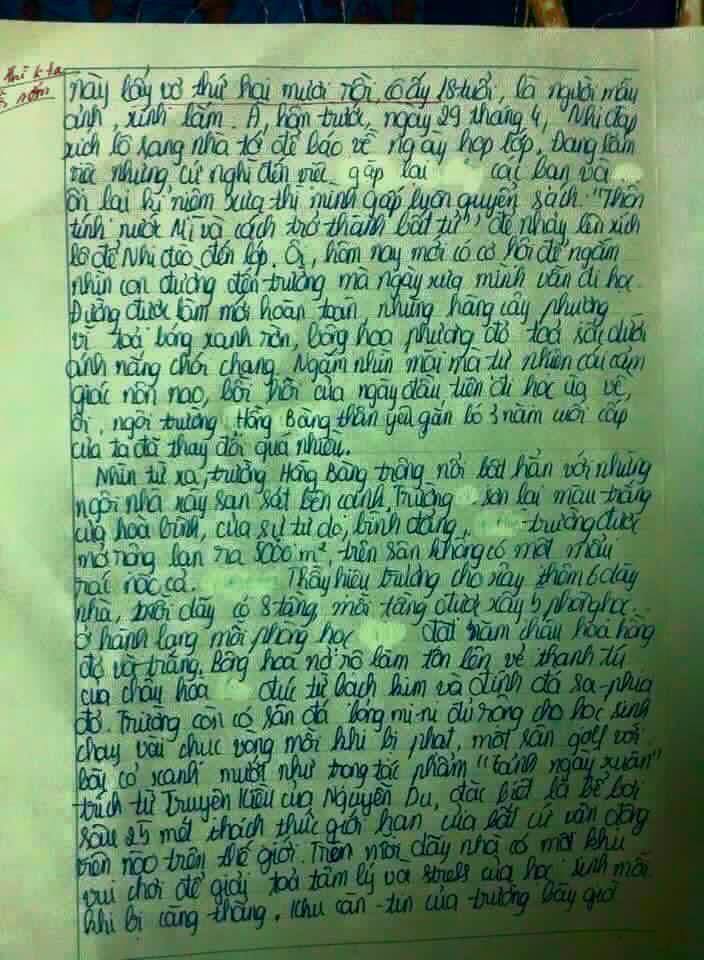 thì k ta
năm
này lấy vợ thứ hai mươi rồi, cô ấy 18 tuổi, là người mẫu
ảnh, xinh lắm. À, hôm trước, ngày 29 tháng 4, Nhi đạp
xích lô sang nhà tớ để báo về ngày họp lớp. Đang làm
việc nhưng cứ nghĩ đến việc gặp lại các bạn và
ôn lại kỉ niệm xưa thì mình gấp luôn quyển sách "Thôn
tính nước Mĩ và cách trở thành bất tử" để nhảy lên xích
lô để Nhi đèo đến lớp. Ôi, hôm nay mới có cơ hội để ngắm
nhìn con đường đến trường mà ngày xưa mình vẫn đi học.
Đường được làm mới hoàn toàn, những hàng cây phượng
vĩ toả bóng xanh rờn, bông hoa phượng đỏ toả sắc dưới
ánh nắng chói chang. Ngắm nhìn mãi mà tự nhiên cái cảm
giác nôn nao, bồi hồi của ngày đầu tiên đi học ùa về,
ôi, ngôi trường Hồng Bàng thân yêu gắn bó 3 năm cuối cấp
của ta đã thay đổi quá nhiều.
Nhìn từ xa, trường Hồng Bàng trông nổi bật hẳn với những
ngôi nhà xây san sát bên cạnh. Trường sơn lại màu trắng
của hoà bình, của sự tự do, bình đẳng, trường được
mở rộng lan ra 5000 m², trên sân không có một mẩu
rác nào cả. Thầy hiệu trưởng cho xây thêm 6 dãy
nhà, mỗi dãy có 8 tầng, mỗi tầng được xây 5 phòng học.
Ở hành lang mỗi phòng học đặt năm chậu hoa hồng
đỏ và trắng. Bông hoa nở rộ làm tôn lên vẻ thanh tú
của chậu hoa đúc từ bạch kim và đính đá sa-phia
đỏ. Trường còn có sân đá bóng mi-ni đủ rộng cho học sinh
chạy vài chục vòng mỗi khi bị phạt, một sân golf với
bãi cỏ xanh mướt như trong tác phẩm "Cảnh ngày xuân"
trích từ Truyện Kiều của Nguyễn Du, đặc biệt là bể bơi
sâu 25 mét thách thức giới hạn của bất cứ vận động
viên nào trên thế giới. Trên mỗi dãy nhà có một khu
vui chơi để giải toả tâm lý và stress của học sinh mỗi
khi bị căng thẳng. Khu căn-tin của trường bây giờ